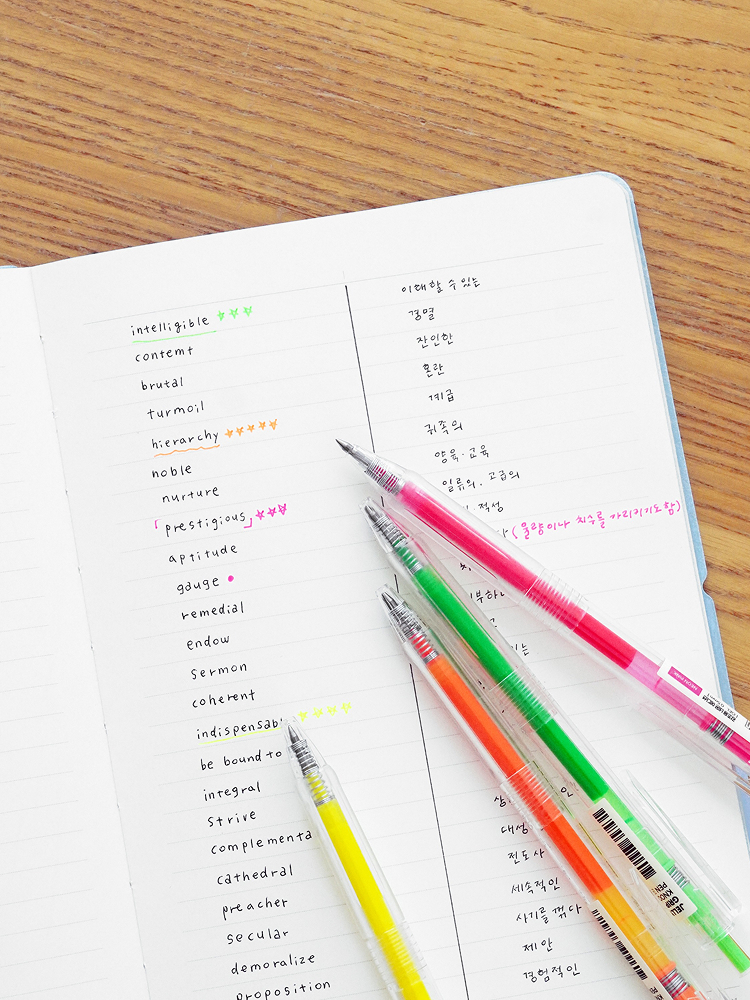 intelligible ☆☆☆ 이해할 수 있는
contemt 경멸
brutal 잔인한
turmoil 혼란
hierarchy ☆☆☆☆☆ 계급
noble 귀족의
nurture 양육·교육
「prestigious」 ☆☆☆ 일류의·고급의
aptitude 적성
gauge • (용량이나 치수를 가리키기도 함)
remedial
endow
sermon
coherent
be bound to
integral
strive
cathedral 대성
preacher 전도사
secular 세속적인
demoralize 사기를 꺾다
proposition 제안
경험적인
NEON PINK
JELL
GRIP
KNO
PEN